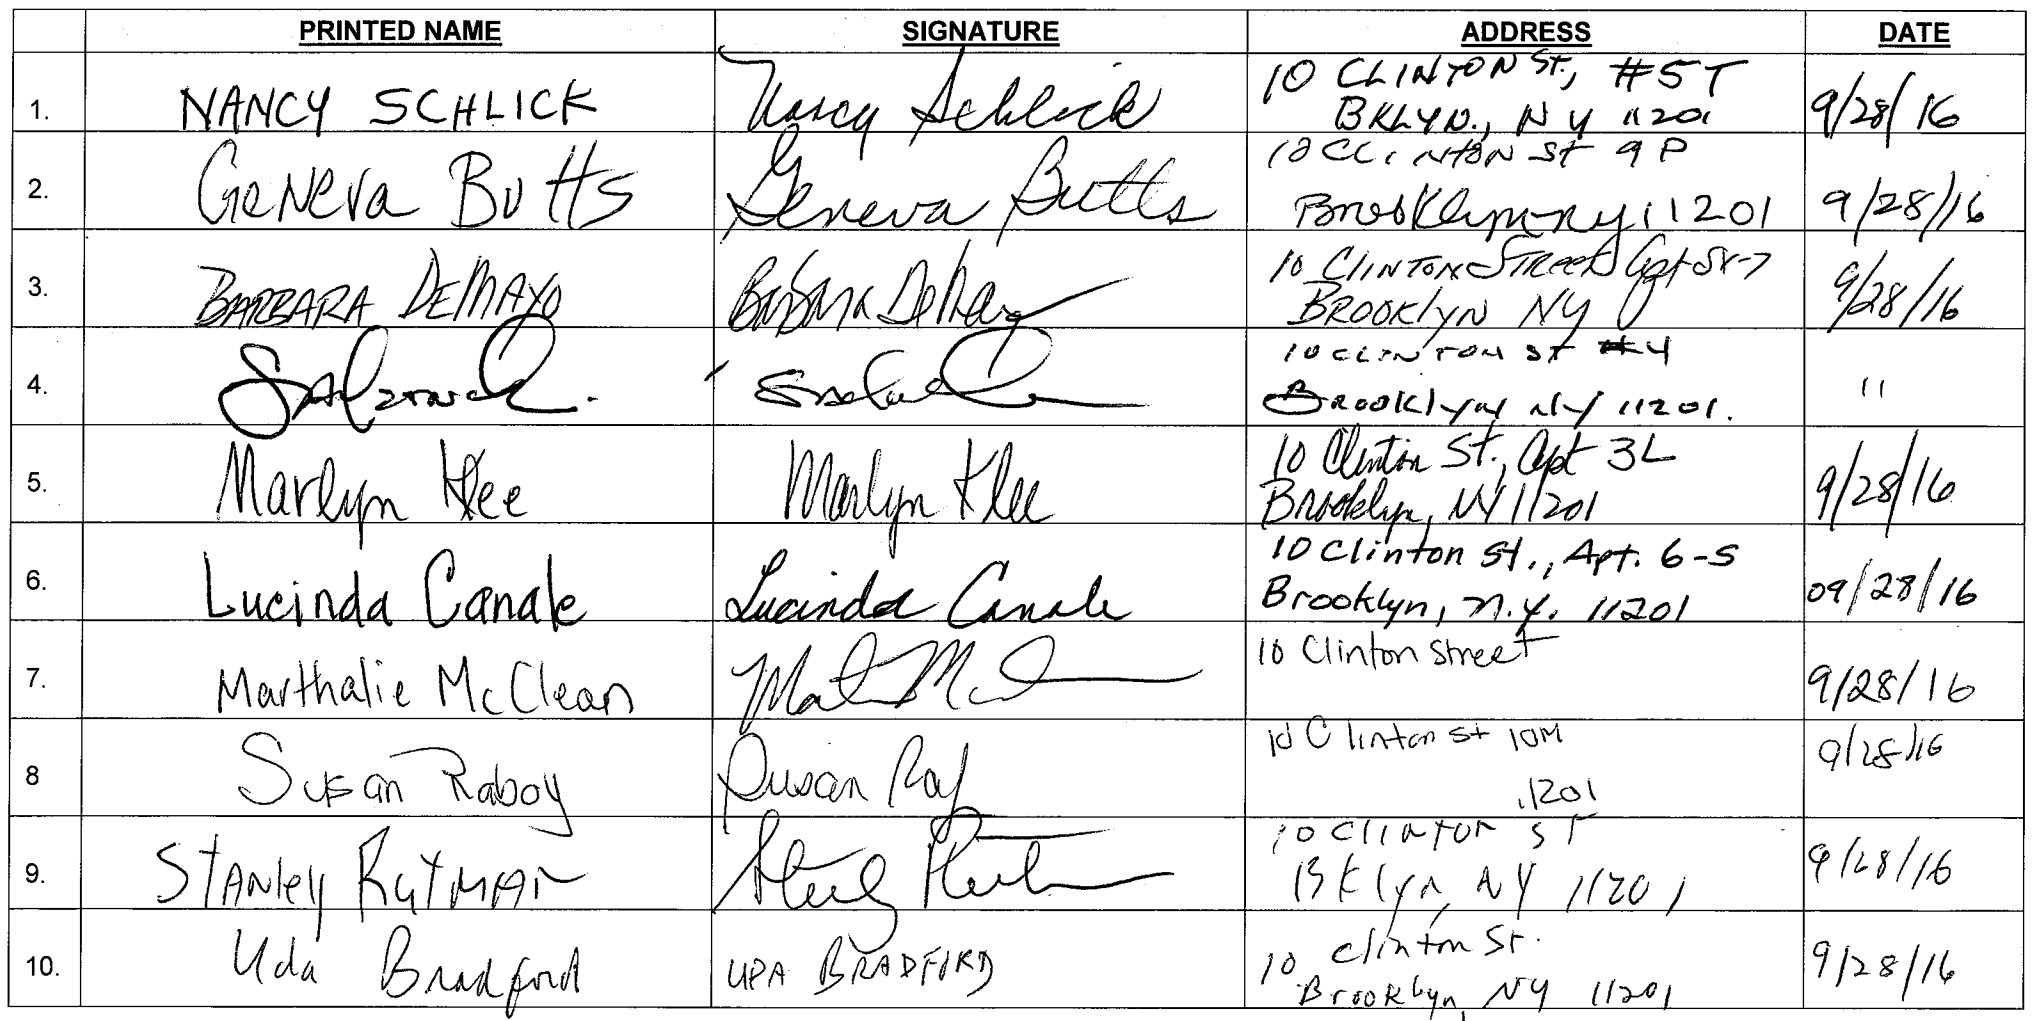 PRINTED NAME SIGNATURE ADDRESS DATE
1. NANCY SCHLICK Nancy Schlick 10 CLINTON ST., #5T 9/28/16
BKLYN., NY 11201
2. Geneva Butts Geneva Butts 10 CLINTON St 9P 9/28/16
Brooklyn ny 11201
3. BARBARA DEMAYO Barbara DeMayo 10 CLINTON STREET 9/28/16
BROOKlyn NY
4. 10 CLINTON ST #4 11
BROOKlyn NY 11201.
5. Marlyn Klee Marlyn Klee 10 Clinton St., Apt 3L 9/28/16
Brooklyn, NY 11201
6. Lucinda Canale Lucinda Canale 10 Clinton St., Apt. 6-S 09/28/16
Brooklyn, N.Y. 11201
7. Marthalie McClean 10 Clinton Street 9/28/16
8 Susan Raboy Susan Ray 10 Clinton St 10M 9/28/16
11201
9. STANley RUTMAN 10 Clinton ST 9/28/16
BKlyn, NY 11201
10. Uda Bradford UDA BRADFORD 10 Clinton St. 9/28/16
Brooklyn, NY 11201